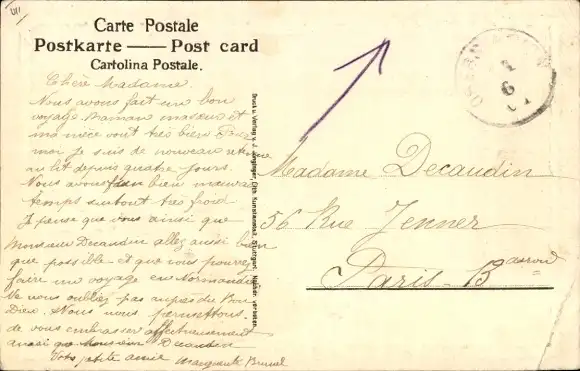 Carte Postale
Postkarte — Post card
Cartolina Postale.
Chère Madame.
Nous avons fait un bon
voyage. Maman ma sœur et
ma nièce vont très bien
moi je suis de nouveau
au lit depuis quatre jours.
Nous avons bien mauvais
temps surtout très froid.
Je pense que vous ainsi que
Monsieur Decaudin allez aussi bien
que possible et que vous pourrez
faire un voyage en Normandie
Ne nous oubliez pas auprès du Bon
Dieu. Nous nous permettons
de vous embrasser affectueusement
ainsi que Monsieur Decaudin
Votre petite amie Marguerite
Druck u. Verlag v. J.
Madame Decaudin
56 Rue Jenner
Paris